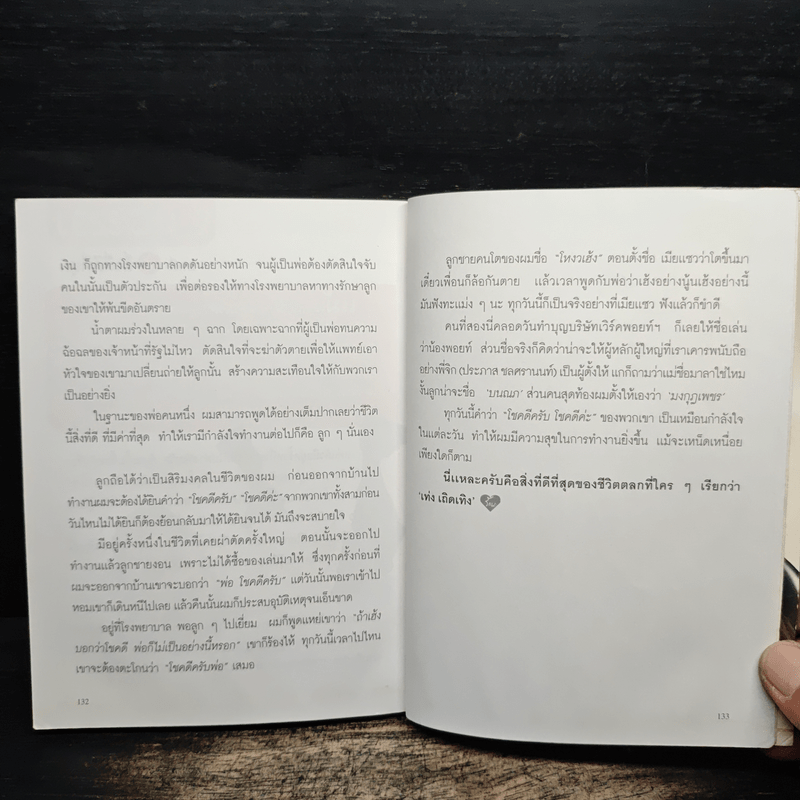 เงิน ก็ถูกทางโรงพยาบาลกดดันอย่างหนัก จนผู้เป็นพ่อต้องตัดสินใจจับ
คนในนั้นเป็นตัวประกัน เพื่อต่อรองให้ทางโรงพยาบาลหาทางรักษาลูก
ของเขาให้พ้นขีดอันตราย
น้ำตาผมร่วงในหลาย ๆ ฉาก โดยเฉพาะฉากที่ผู้เป็นพ่อทนความ
ฉ้อฉลของเจ้าหน้าที่รัฐไม่ไหว ตัดสินใจที่จะฆ่าตัวตายเพื่อให้แพทย์เอา
หัวใจของเขามาเปลี่ยนถ่ายให้ลูกนั้น สร้างความสะเทือนใจให้กับพวกเรา
เป็นอย่างยิ่ง
ในฐานะของพ่อคนหนึ่ง ผมสามารถพูดได้อย่างเต็มปากเลยว่าชีวิต
นี้สิ่งที่ดี ที่มีค่าที่สุด ทำให้เรามีกำลังใจทำงานต่อไปก็คือ ลูก ๆ นั่นเอง
ลูกถือได้ว่าเป็นสิริมงคลในชีวิตของผม ก่อนออกจากบ้านไป
ทำงานผมจะต้องได้ยินคำว่า "โชคดีครับ" "โชคดีค่ะ" จากพวกเขาทั้งสามก่อน
วันไหนไม่ได้ยินก็ต้องย้อนกลับมาให้ได้ยินจนได้ มันถึงจะสบายใจ
มีอยู่ครั้งหนึ่งในชีวิตที่เคยผ่าตัดครั้งใหญ่ ตอนนั้นจะออกไป
ทำงานแล้วลูกชายงอน เพราะไม่ได้ซื้อของเล่นมาให้ ซึ่งทุกครั้งก่อนที่
ผมจะออกจากบ้านเขาจะบอกว่า "พ่อ โชคดีครับ" แต่วันนั้นพอเราเข้าไป
หอมเขาก็เดินหนีไปเลย แล้วคืนนั้นผมก็ประสบอุบัติเหตุจนเอ็นขาด
อยู่ที่โรงพยาบาล พอลูก ๆ ไปเยี่ยม ผมก็พูดแหย่เขาว่า "ถ้าเฮ้ง
บอกว่าโชคดี พ่อก็ไม่เป็นอย่างนี้หรอก" เขาก็ร้องไห้ ทุกวันนี้เวลาไปไหน
เขาจะต้องตะโกนว่า "โชคดีครับพ่อ" เสมอ
132
ลูกชายคนโตของผมชื่อ "โหงวเฮ้ง" ตอนตั้งชื่อ เมียแซวว่าโตขึ้นมา
เดี๋ยวเพื่อนก็ล้อกันตาย แล้วเวลาพูดกับพ่อว่าเฮ้งอย่างนู้นเฮ้งอย่างนี้
มันฟังทะแม่ง ๆ นะ ทุกวันนี้ก็เป็นจริงอย่างที่เมียแซว ฟังแล้วก็ขำดี
คนที่สองนี่คลอดวันทำบุญบริษัทเวิร์คพอยท์ฯ ก็เลยให้ชื่อเล่น
ว่าน้องพอยท์ ส่วนชื่อจริงก็คิดว่าน่าจะให้ผู้หลักผู้ใหญ่ที่เราเคารพนับถือ
อย่างพี่จิก (ประภาส ชลศรานนท์) เป็นผู้ตั้งให้ แกก็ถามว่าแม่ชื่อมาลาใช่ไหม
งั้นลูกน่าจะชื่อ 'บนณภ' ส่วนคนสุดท้องผมตั้งให้เองว่า 'มงกุฎเพชร'
ทุกวันนี้คำว่า "โชคดีครับ โชคดีค่ะ" ของพวกเขา เป็นเหมือนกำลังใจ
ในแต่ละวัน ทำให้ผมมีความสุขในการทำงานยิ่งขึ้น แม้จะเหน็ดเหนื่อย
เพียงใดก็ตาม
นี่แหละครับคือสิ่งที่ดีที่สุดของชีวิตตลกที่ใคร ๆ เรียกว่า
'เท่ง เถิดเทิง'
133